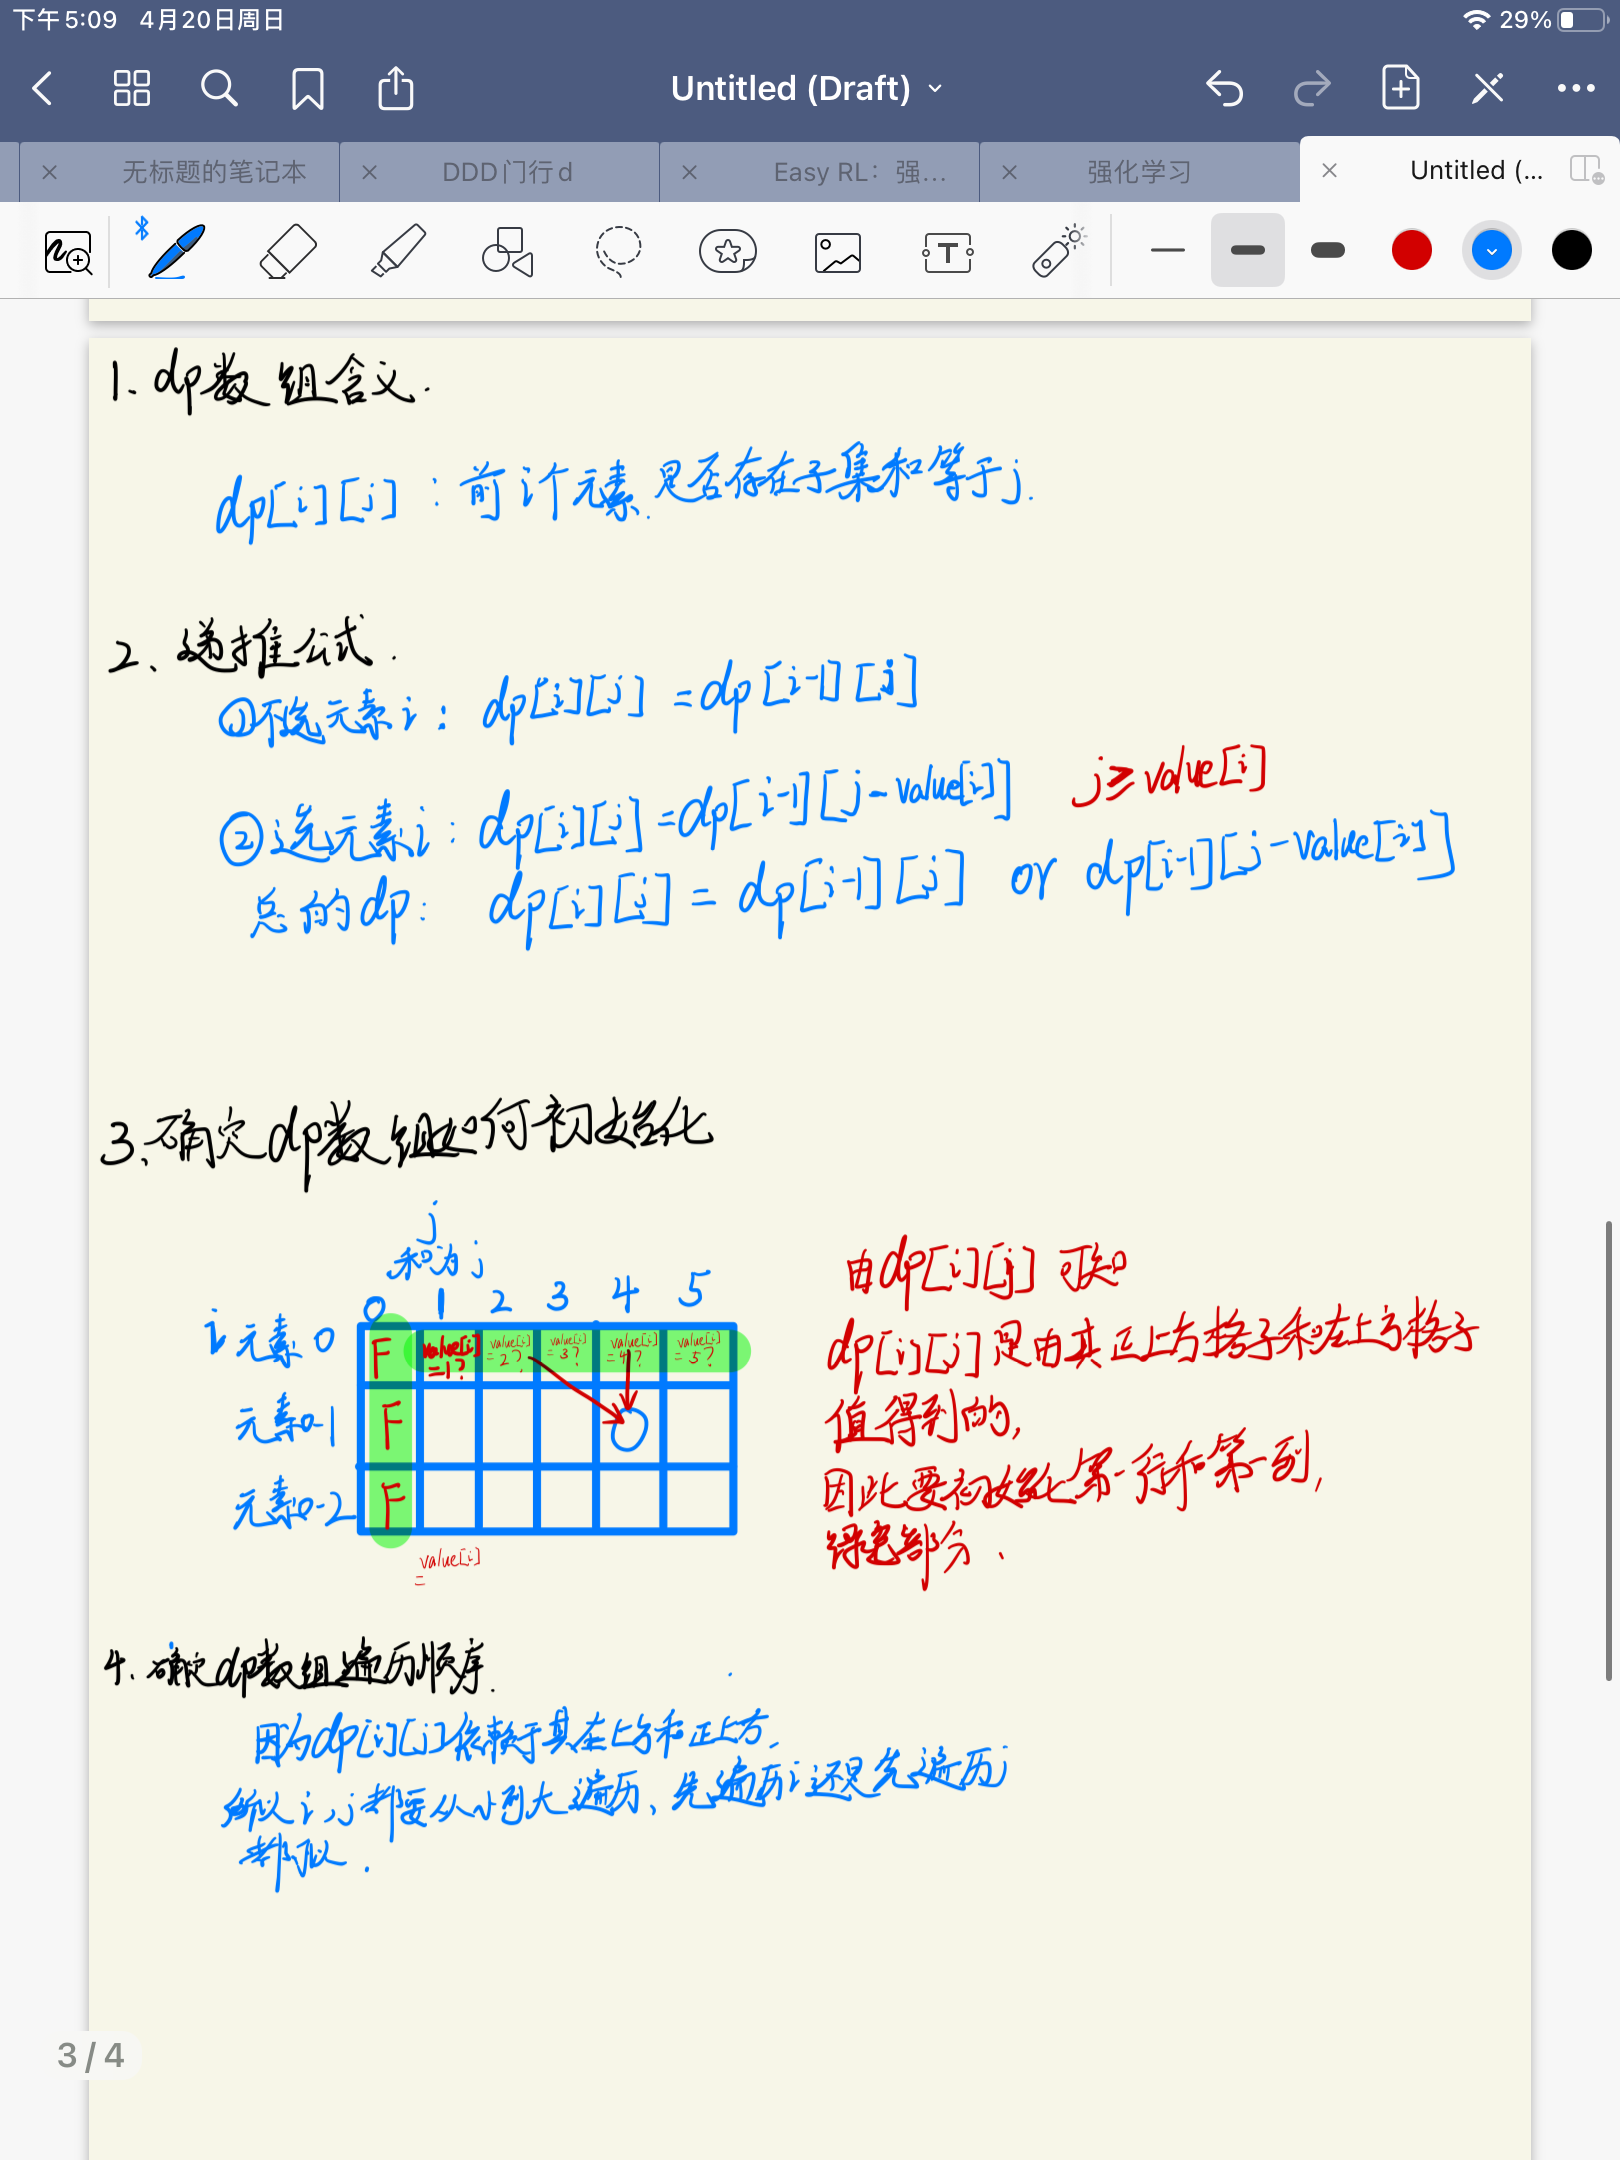 下午5:09 4月20日周日 29%
Untitled (Draft)
无标题的笔记本 DDD门行d Easy RL：强... 强化学习 Untitled (...
1、dp数组含义.
dp[i][j]：前i个元素.是否存在子集和等于j.
2、递推公式.
①不选元素i：dp[i][j] = dp[i-1][j]
②选元素i：dp[i][j] = dp[i-1][j-value[i]] j≥value[i]
总的dp：dp[i][j] = dp[i-1][j] or dp[i-1][j-value[i]]
3、确定dp数组如何初始化
j
和为j
0 1 2 3 4 5
i 元素0 F value[i]=1? value[i]=2? value[i]=3? value[i]=4? value[i]=5?
元素0-1 F
元素0-2 F
value[i]
=
由dp[i][j]可知
dp[i][j]是由其正上方格子和左上方格子
值得到的，
因此要初始化第一行和第一列，
绿色部分.
4、确定dp数组遍历顺序.
因为dp[i][j]依赖于其左上方和正上方，
所以i,j都要从小到大遍历、先遍历i还是先遍历j
都可以.
3 / 4